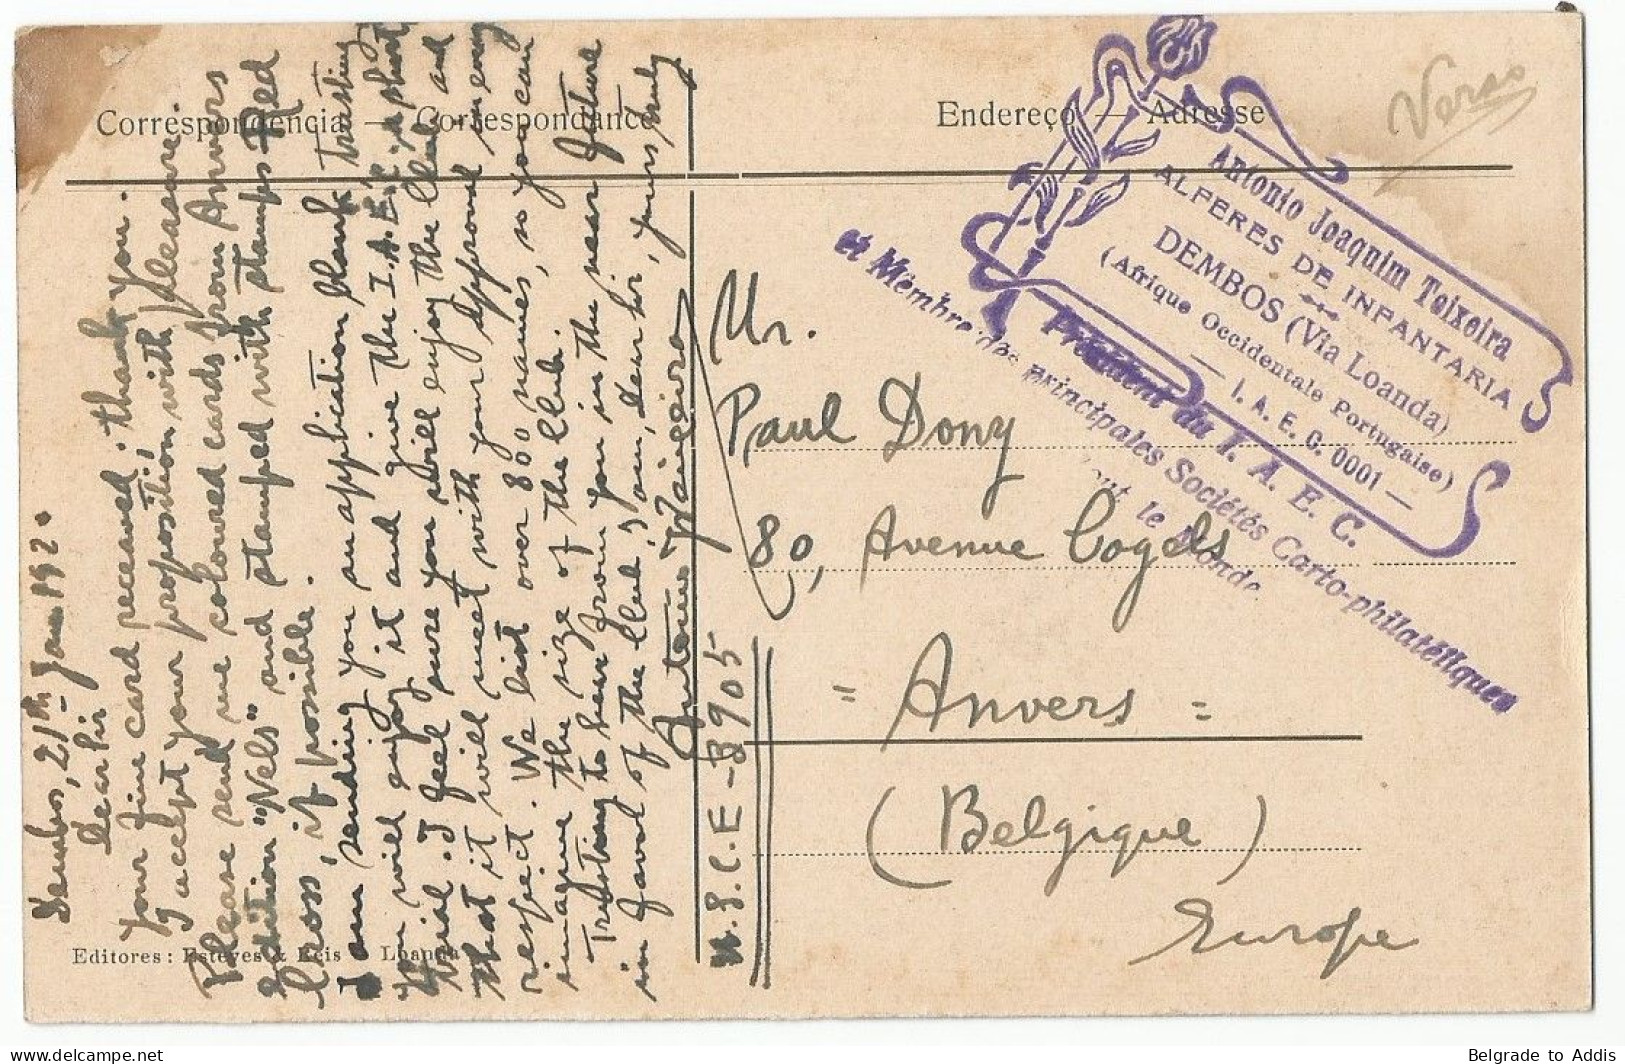 Correspondencia — Correspondance
Endereço — Adresse
Verso
Dembos, 21th Jan 192
Dear Sir
Your fine card received: thank you.
I accept your proposition with pleasure.
Please send me coloured cards from Anvers
Edition "Nels" and stamped with stamps Red
Cross, if possible.
I am sending you an application blank trusting
you will enjoy it and give the I.A.E.C. a short
trial. I feel sure you will enjoy the Club and
that it will meet with your approval in every
respect. We list over 800 names, so you can
imagine the size of the Club.
Trusting to hear from you in the near future
in favor of the Club, I am, dear Sir, yours truly
Antonio J. Teixeira
U.S.C.E-3905
Mr.
Paul Dony
80, Avenue Cogels
= Anvers =
(Belgique)
Europe
Antonio Joaquim Teixeira
ALFERES DE INFANTARIA
DEMBOS (Via Loanda)
(Afrique Occidentale Portugaise)
— I. A. E. C. 0001 —
Président du I. A. E. C.
et Mêmbre des principales Sociétés Carto-philatéliques
tout le Monde
Editores: Esteves & Reis — Loanda
Belgrade to Addis